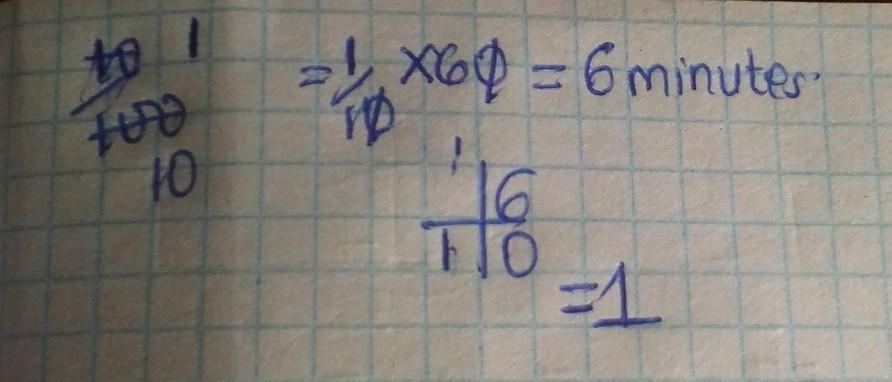 10 1
100
10
= 1/10 × 60 = 6 minutes.
1 6
1 0
= 1